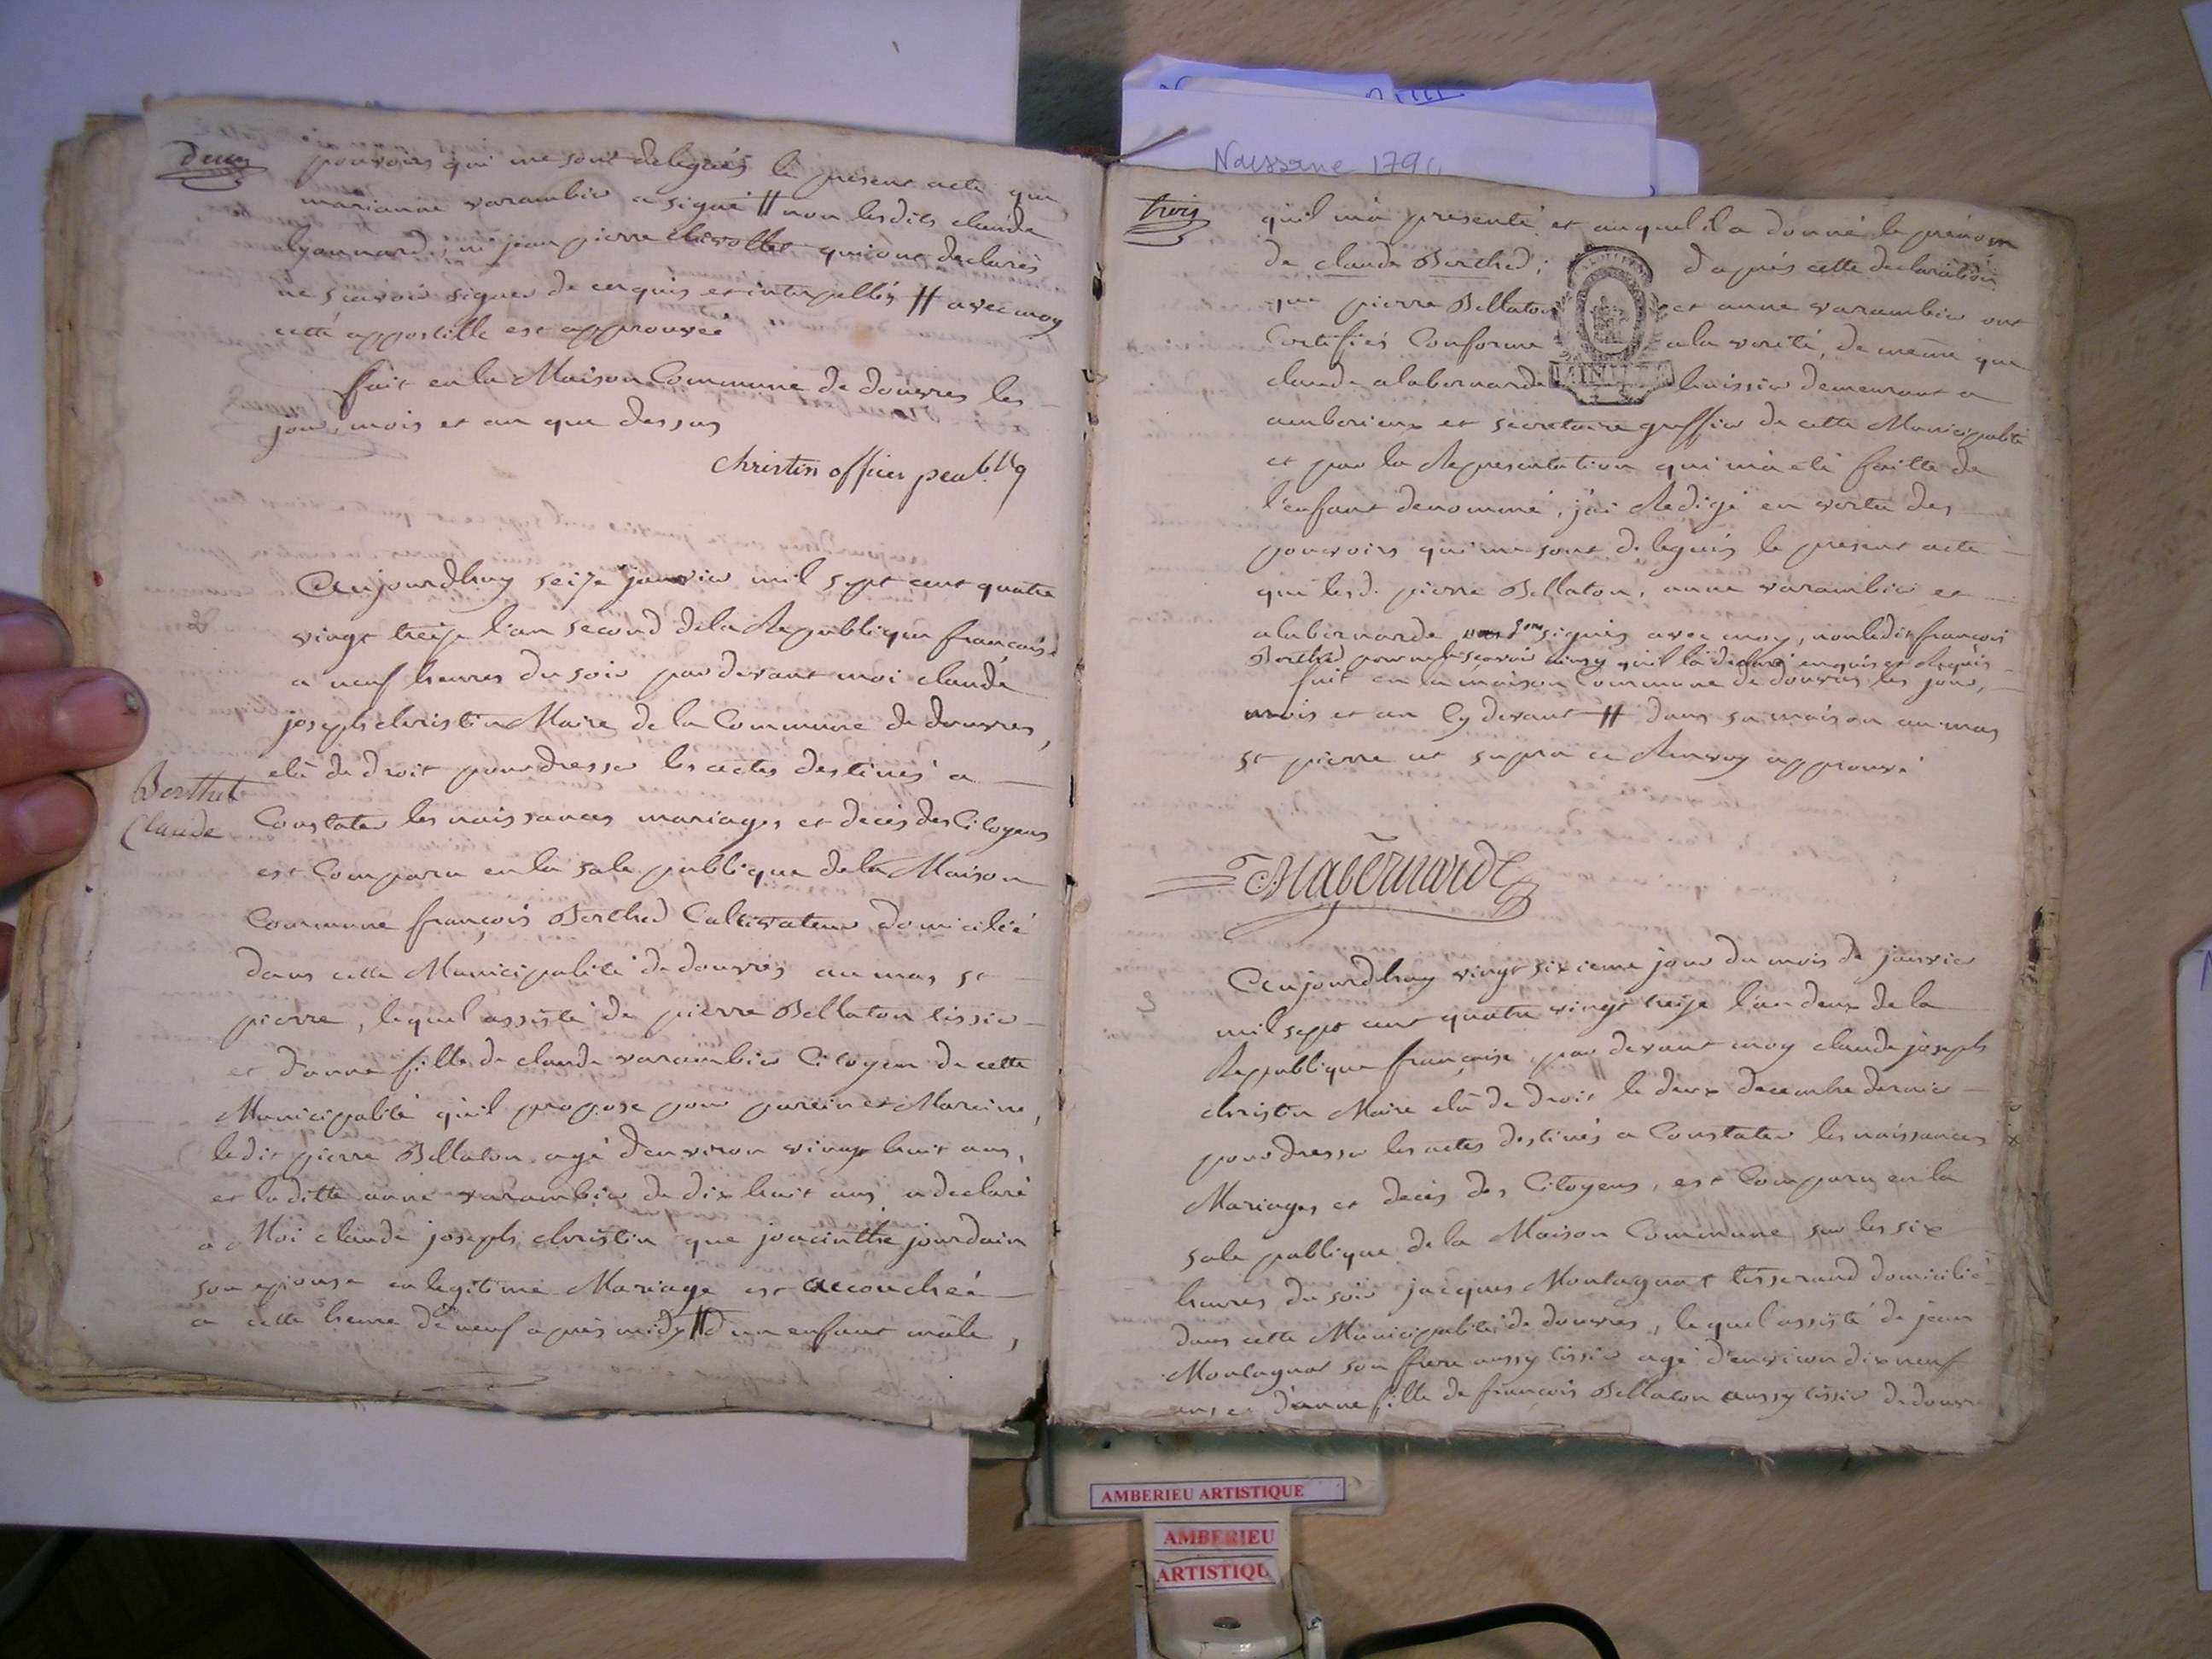 deux
pouvoirs qui me sont delegués le present acte que
marianne varambier a signé # non lesdits claude
lyonnard, ni jean pierre chivollet qui ont declarés
ne scavoir signer de ce requis et interpellés # avec moy
cette appostille est approuvée
fait en la Maison Commune de douvres les
jour, mois et an que dessus
christin officier peubliq
Aujourdhuy seize janvier mil sept cent quatre
vingt treize l'an second de la Republique française
a neuf heures du soir par devant moi claude
joseph christin Maire de la Commune de douvres,
elû de droit pour dresser les actes destinés a
Berthet
Claude
Constater les naissances mariages et decés des Citoyens
est Comparu en la sale publique de la Maison
Commune françois Berthed Cultivateur domicilié
dans cette Municipalité de douvres au mas st
pierre, lequel assisté de pierre Bellaton tissier
et d'anne fille de claude varambier Citoyen de cette
Municipalité qu'il propose pour parein et Mareine,
ledit pierre Bellaton agé d'environ vingt huit ans,
et laditte anne varambier de dix huit ans, a declaré
a Moi claude joseph christin que joacinthe jourdain
son epouse en legitime Mariage est accouchée
a cette heure de neuf après midy # d'un enfant mâle,
Naissane 179
trois
qu'il m'a presenté et auquel il a donné le prénom
de claude Berthed; d'après cette declaration
que pierre Bellaton et anne varambier ont
Certifiés Conforme a la verité, de même que
claude alabernarde huissier demeurant a
amberieux et sécrétaire greffier de cette Municipalité
et par la Representation qui m'a été faitte de
l'enfant denommé, j'ai Redigé en vertu des
pouvoirs qui me sont delegués le present acte
que lesd. pierre Bellaton, anne varambier et
alabernarde sont signés avec moy, non ledit françois
Berthed pour ne scavoir ainsy qu'il l'a declaré enquis et Requis
fait en la maison Commune de douvres les jour,
mois et an Cy devant # dans sa maison au mas
st pierre ut supra ce Renvoy approuvé
Alabernarde
Aujourdhuy vingt sixieme jour du mois de janvier
mil sept cent quatre vingt treize l'an deux de la
Republique française par devant moy claude joseph
christin Maire elû de droit le deux decembre dernier
pour dresser les actes destinés a Constater les naissances
Mariages et decès des Citoyens, est Comparu en la
sale publique de la Maison Commune sur les six
heures du soir jacques Montagnat tisserand domicilié
dans cette Municipalité de douvres, lequel assisté de jean
Montagnat son frere aussy tissier agé d'environ dix neuf
ans et d'anne fille de françois Bellaton aussy tissier de douvres
AMBERIEU ARTISTIQUE
AMBERIEU
ARTISTIQU